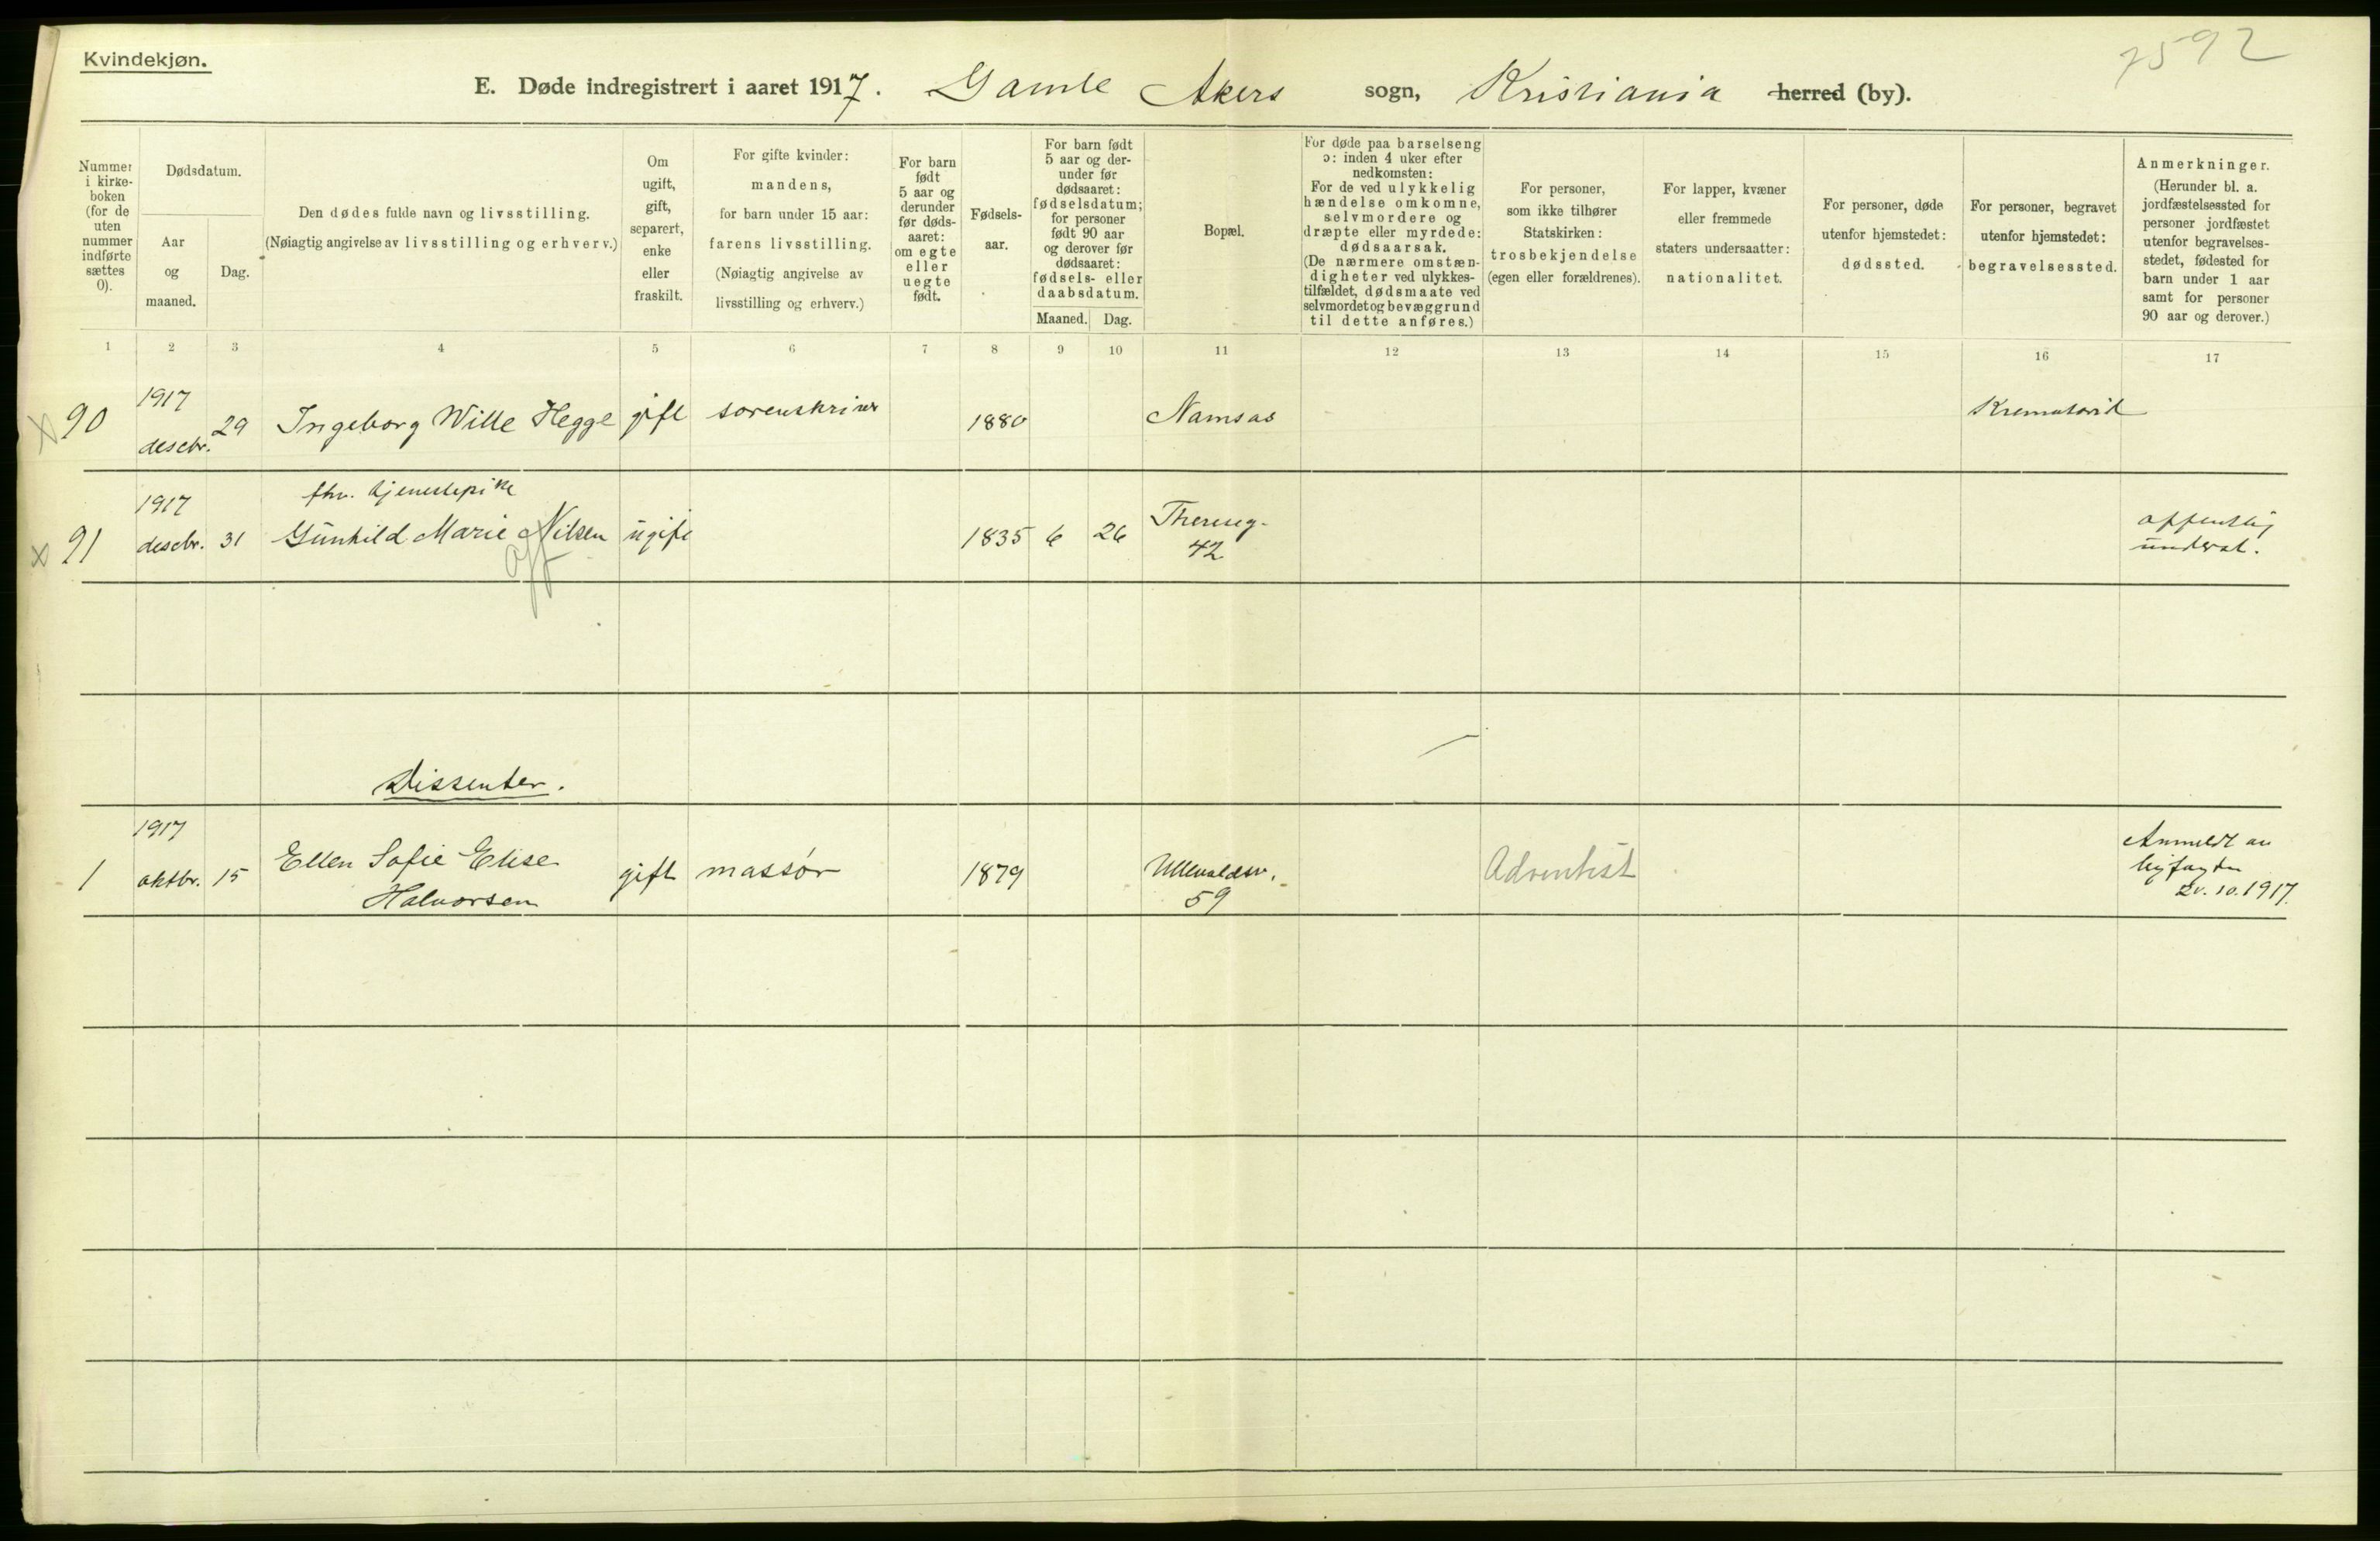 Kvindekjøn.
7592
E. Døde indregistrert i aaret 1917. Gamle Akers sogn, Kristiania herred (by).
Nummer i kirke-boken (for de uten nummer indførte sættes 0).
Dødsdatum.
Aar og maaned.
Dag.
Den dødes fulde navn og livsstilling.
(Nøiagtig angivelse av livsstilling og erhverv.)
Om ugift, gift, separert, enke eller fraskilt.
For gifte kvinder: mandens, for barn under 15 aar: farens livsstilling. (Nøiagtig angivelse av livsstilling og erhverv.)
For barn født 5 aar og derunder før døds-aaret: om egte eller uegte født.
Fødsels-aar.
For barn født 5 aar og der-under før dødsaaret: fødselsdatum; for personer født 90 aar og derover før dødsaaret: fødsels- eller daabsdatum.
Maaned. Dag.
Bopæl.
For døde paa barselseng ɔ: inden 4 uker efter nedkomsten: For de ved ulykkelig hændelse omkomne, selvmordere og dræpte eller myrdede: dødsaarsak. (De nærmere omstæn-digheter ved ulykkes-tilfældet, dødsmaate ved selvmordet og bevæggrund til dette anføres.)
For personer, som ikke tilhører Statskirken: trosbekjendelse (egen eller forældrenes).
For lapper, kvæner eller fremmede staters undersaatter: nationalitet.
For personer, døde utenfor hjemstedet: dødssted.
For personer, begravet utenfor hjemstedet: begravelsessted.
Anmerkninger. (Herunder bl. a. jordfæstelsessted for personer jordfæstet utenfor begravelses-stedet, fødested for barn under 1 aar samt for personer 90 aar og derover.)
1 2 3 4 5 6 7 8 9 10 11 12 13 14 15 16 17
1917
90 desebr. 29 Ingeborg Wille Hegge gift sorenskriver 1880 Namsos Krematoriet
1917 fhv. tjenestepike
91 desebr. 31 Gunhild Marie Nilsen ugift 1835 6 26 Thereseg. 42 offentlig underst.
off
Dissenter.
1917
1 oktbr. 15 Ellen Sofie Elise Halvorsen gift massør 1879 Ullevaldsv. 59 Adventist Anmeldt av
10.1917.